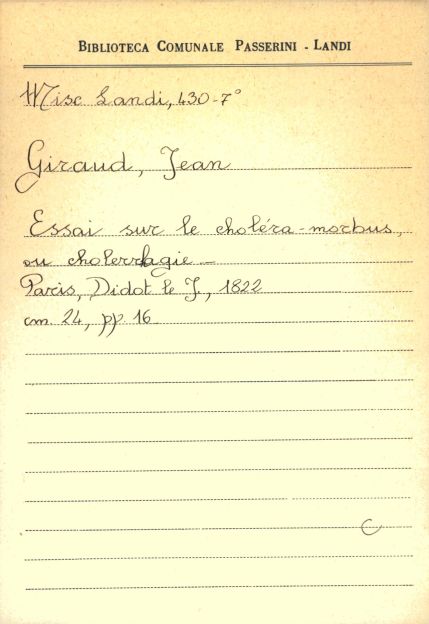 BIBLIOTECA COMUNALE PASSERINI - LANDI
Misc Landi, 430-7°
Giraud, Jean
Essai sur le choléra-morbus,
ou cholerrhagie -
Paris, Didot le J., 1822
cm. 24, pp. 16
C